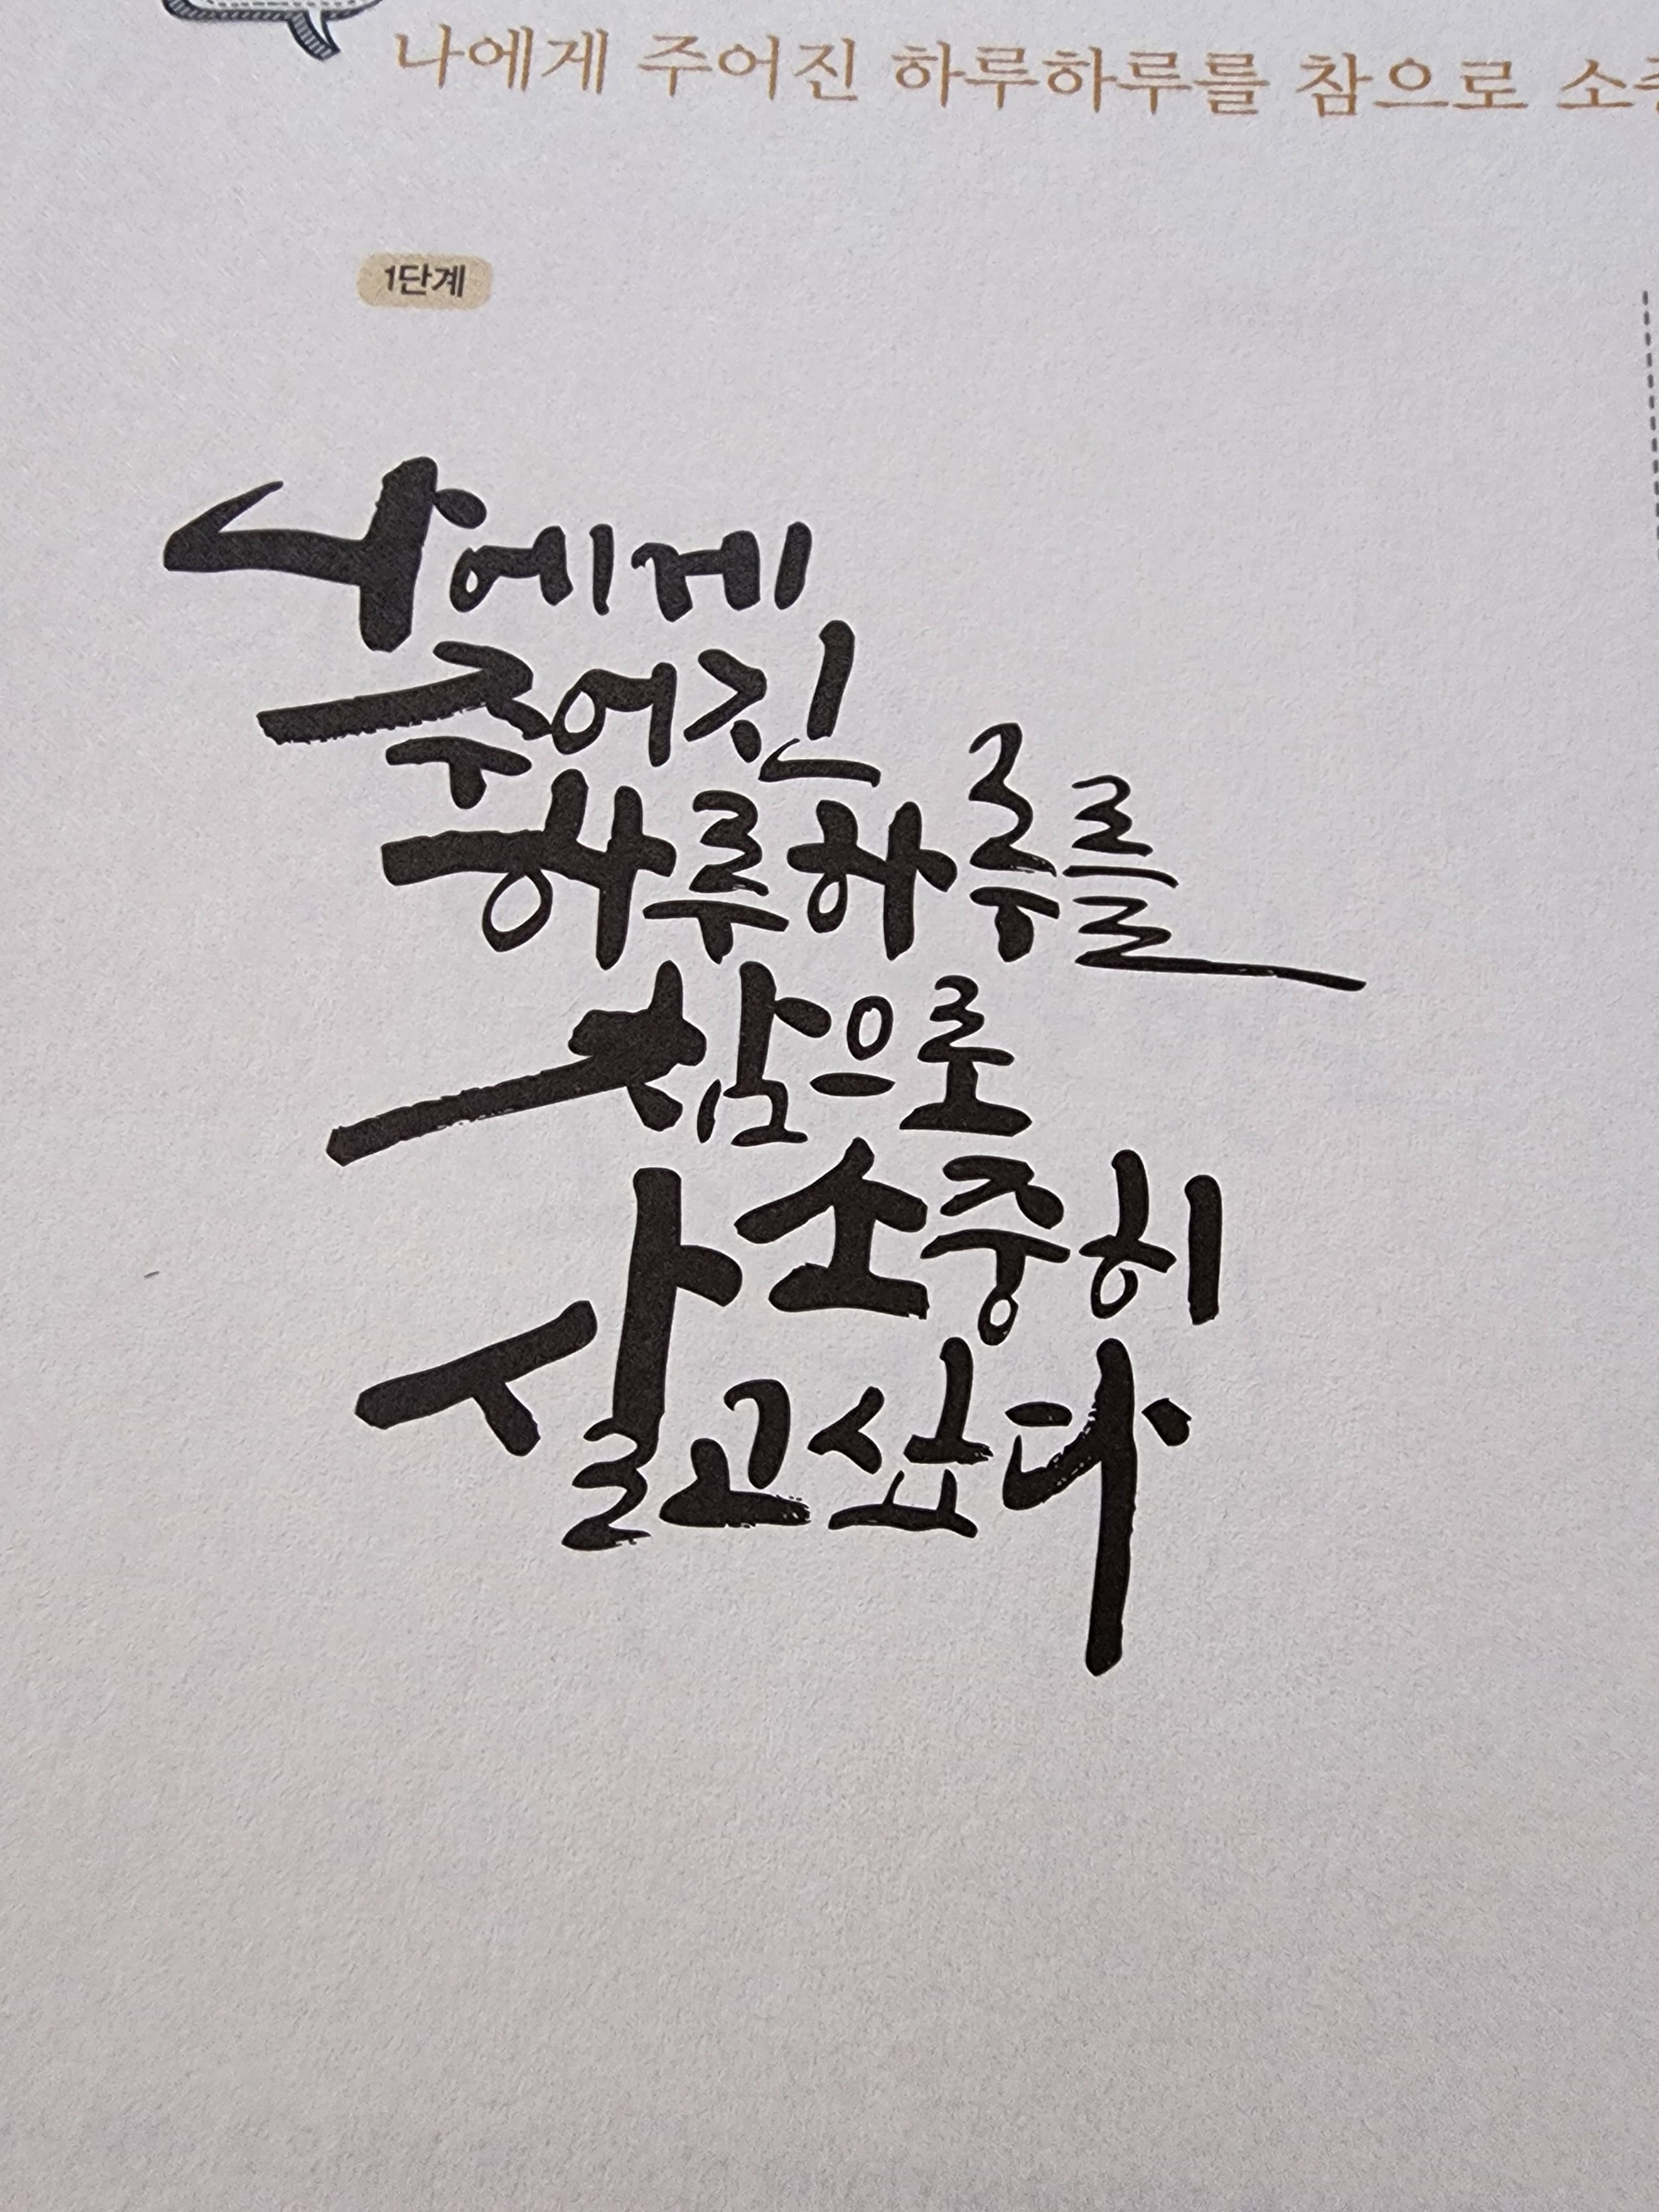 나에게 주어진 하루하루를 참으로
1단계
나에게
주어진
하루하루를
참으로
소중히
살고싶다